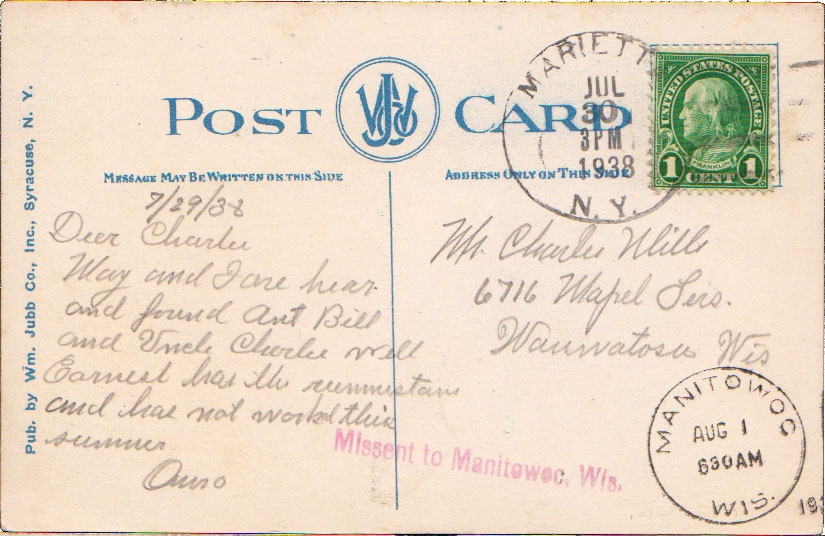 Pub. by Wm. Jubb Co., Inc., Syracuse, N. Y.
POST CARD
MESSAGE MAY BE WRITTEN ON THIS SIDE
ADDRESS ONLY ON THIS SIDE
MARIETT
JUL
30
3PM
1938
N. Y.
UNITED STATES POSTAGE
FRANKLIN
1 CENT 1
7/29/38
Dear Charlie
May and I are hear
and found Ant Bill
and Uncle Charlie well
Earnest has the
and has not worked this
summer
Mr. Charlie Mills
6716 Mapel
Wauwatosa Wis
Missent to Manitowoc, Wis.
MANITOWOC
AUG 1
630AM
WIS.
193